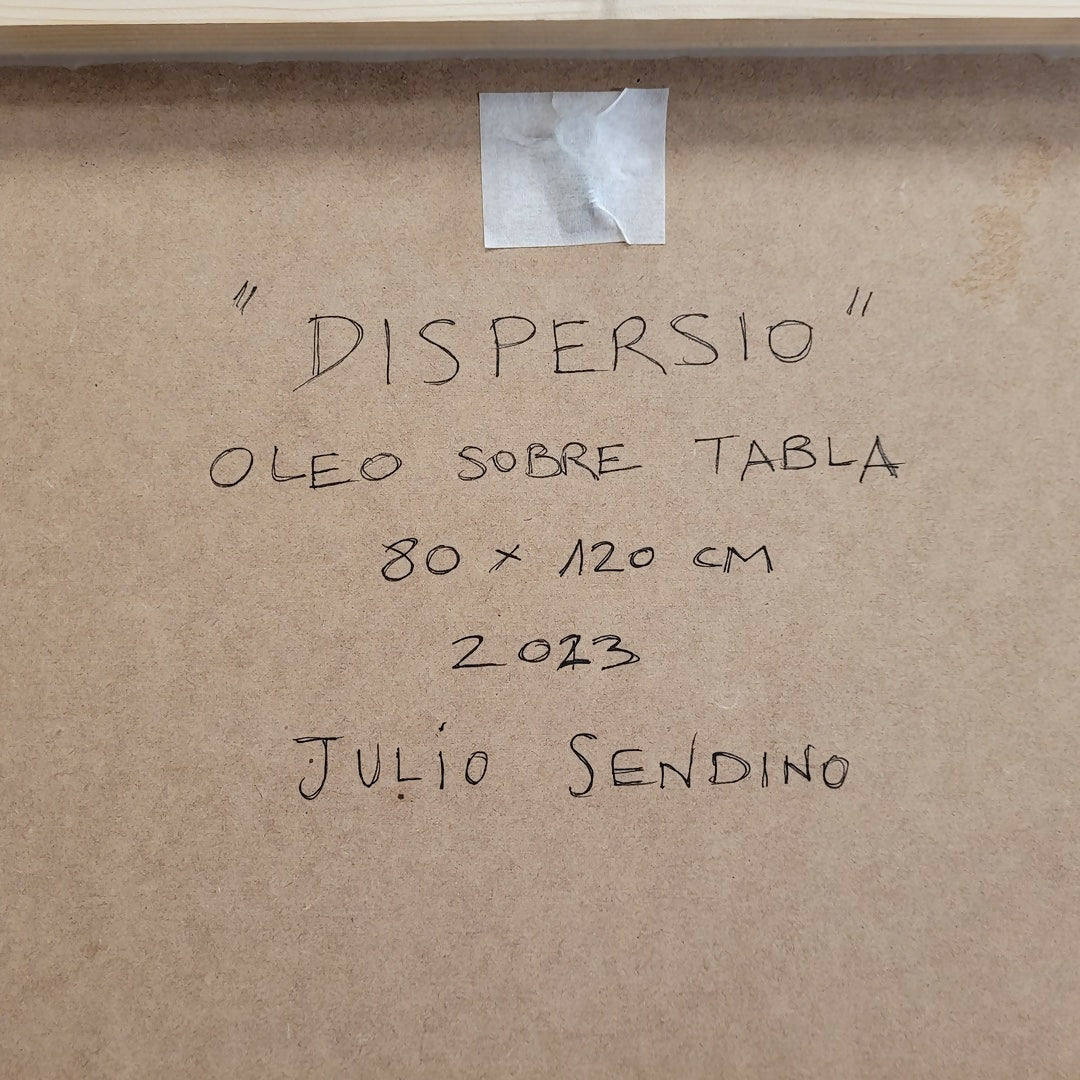 "DISPERSIO"
OLEO SOBRE TABLA
80 x 120 CM
2023
JULIO SENDINO